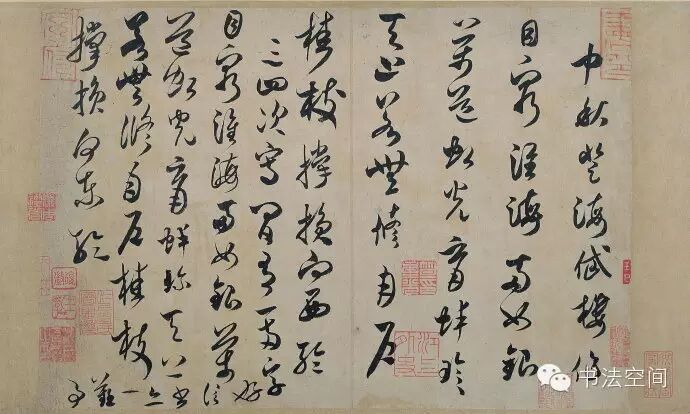 中秋登海岱樓作
目窮淮海兩如銀
萬道虹光育蚌珍
天上若無修月戶
桂枝撐損向西輪
三四次寫間有一兩字
好信書亦一難事
目窮淮海兩如銀萬
道虹光育蚌珍天上
若無修月戶桂枝
撐損向東輪
书法空间